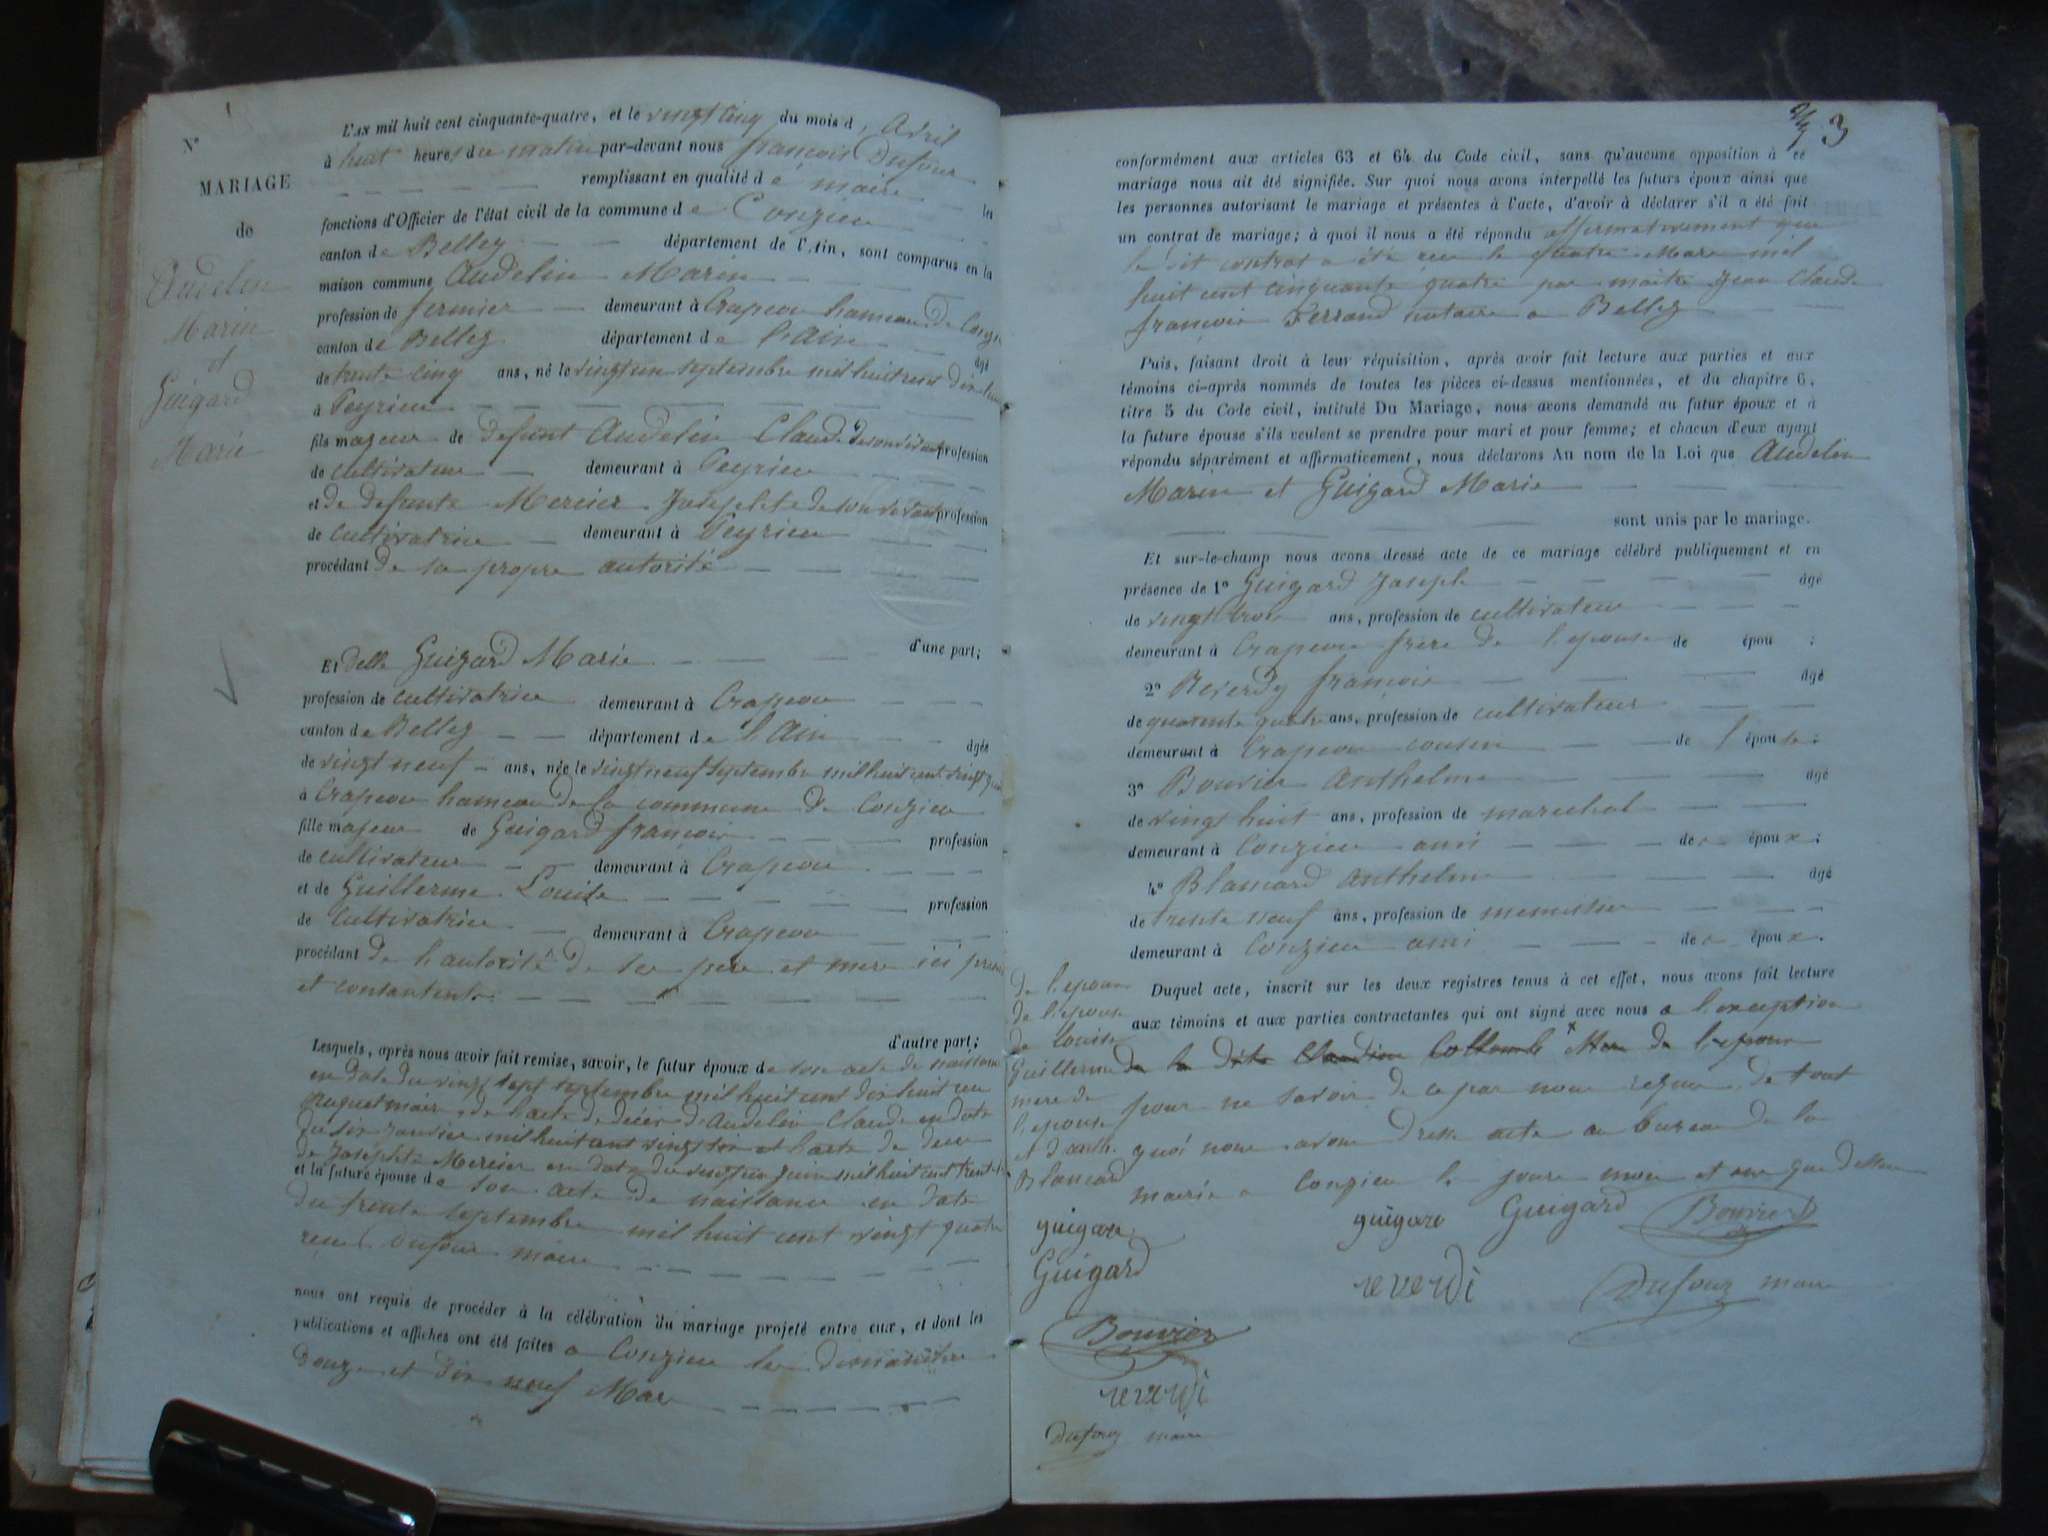 N°
MARIAGE
de
Audelin
Marin
et
Guigard
Marie
L'AN mil huit cent cinquante-quatre, et le vingt cinq du mois d'Avril
à huit heures du matin par-devant nous françois Dufour
remplissant en qualité de maire les
fonctions d'Officier de l'état civil de la commune de Conzieu
canton de Belley département de l'Ain, sont comparus en la
maison commune Audelin Marin
profession de fermier demeurant à Crapeou hameau de
canton de Belley département de l'Ain âgé
de trente cinq ans, né le septembre mil huit cent dix huit
à Peyrieu
fils majeur de defunt Audelin Claude de son vivant profession
de cultivateur demeurant à Peyrieu
et de defunte Mercier Josephte de son vivant profession
de cultivatrice demeurant à Peyrieu
procédant de sa propre autorité
d'une part;
Et delle Guigard Marie
profession de cultivatrice demeurant à Crapeou
canton de Belley département de l'Ain âgée
de vingt neuf ans, née le vingt neuf septembre mil huit cent vingt
à Crapeou hameau de la commune de Conzieu
fille majeur de Guigard françois profession
de cultivateur demeurant à Crapeou
et de Guillerme Louise profession
de cultivatrice demeurant à Crapeou
procédant de l'autorité de ses pere et mere ici
et consantent
d'autre part;
Lesquels, après nous avoir fait remise, savoir, le futur époux de son acte de naissance
en date du vingt sept septembre mil huit cent dix huit
maire, de l'acte de décès d'Audelin Claude en date
du six Janvier mil huit cent vingt six et l'acte de deces
de Josephte Mercier en date du Juin mil huit cent
et la future épouse de son acte de naissance en date
du trente septembre mil huit cent vingt quatre
reçu Dufour maire
nous ont requis de procéder à la célébration du mariage projeté entre eux, et dont les
publications et affiches ont été faites a Conzieu les dimanches
douze et dix neuf Mars
3
conformément aux articles 63 et 64 du Code civil, sans qu'aucune opposition à ce
mariage nous ait été signifiée. Sur quoi nous avons interpellé les futurs époux ainsi que
les personnes autorisant le mariage et présentes à l'acte, d'avoir à déclarer s'il a été fait
un contrat de mariage; à quoi il nous a été répondu affirmativement que
le dit contrat a été reçu le quatre Mars mil
huit cent cinquante quatre par maître Jean Claude
françois Ferrand notaire a Belley
Puis, faisant droit à leur réquisition, après avoir fait lecture aux parties et aux
témoins ci-après nommés de toutes les pièces ci-dessus mentionnées, et du chapitre 6,
titre 5 du Code civil, intitulé Du Mariage, nous avons demandé au futur époux et à
la future épouse s'ils veulent se prendre pour mari et pour femme; et chacun d'eux ayant
répondu séparément et affirmativement, nous déclarons Au nom de la Loi que Audelin
Marin et Guigard Marie
sont unis par le mariage.
Et sur-le-champ nous avons dressé acte de ce mariage célébré publiquement et en
présence de 1° Guigard Joseph âgé
de vingt trois ans, profession de cultivateur
demeurant à Crapeou frère de l'epouse de épou ;
2° Reverdy françois âgé
de quarente quatre ans, profession de cultivateur
demeurant à Crapeou cousin de l'épouse;
3° Bouvier Anthelme âgé
de vingt huit ans, profession de marechal
demeurant à Conzieu ami de époux;
4° Blancard Anthelme âgé
de trente neuf ans, profession de menusier
demeurant à Conzieu ami de époux.
Duquel acte, inscrit sur les deux registres tenus à cet effet, nous avons fait lecture
aux témoins et aux parties contractantes qui ont signé avec nous a l'exception
de la dite Claudine Collomb Mere de l'epoux
pour ne savoir de ce par nous requis de tout
quoi nous avons dresse acte au bureau de la
mairie a Conzieu le jours mois et an que dessus
de l'epoux
de l'epouse
de louise
Guillerme
mere de
l'epouse
et d'anth.
Blancard
guigard
Guigard
Bouvier
reverdi
Dufour maire
guigard Guigard Bouvier
reverdi Dufour maire